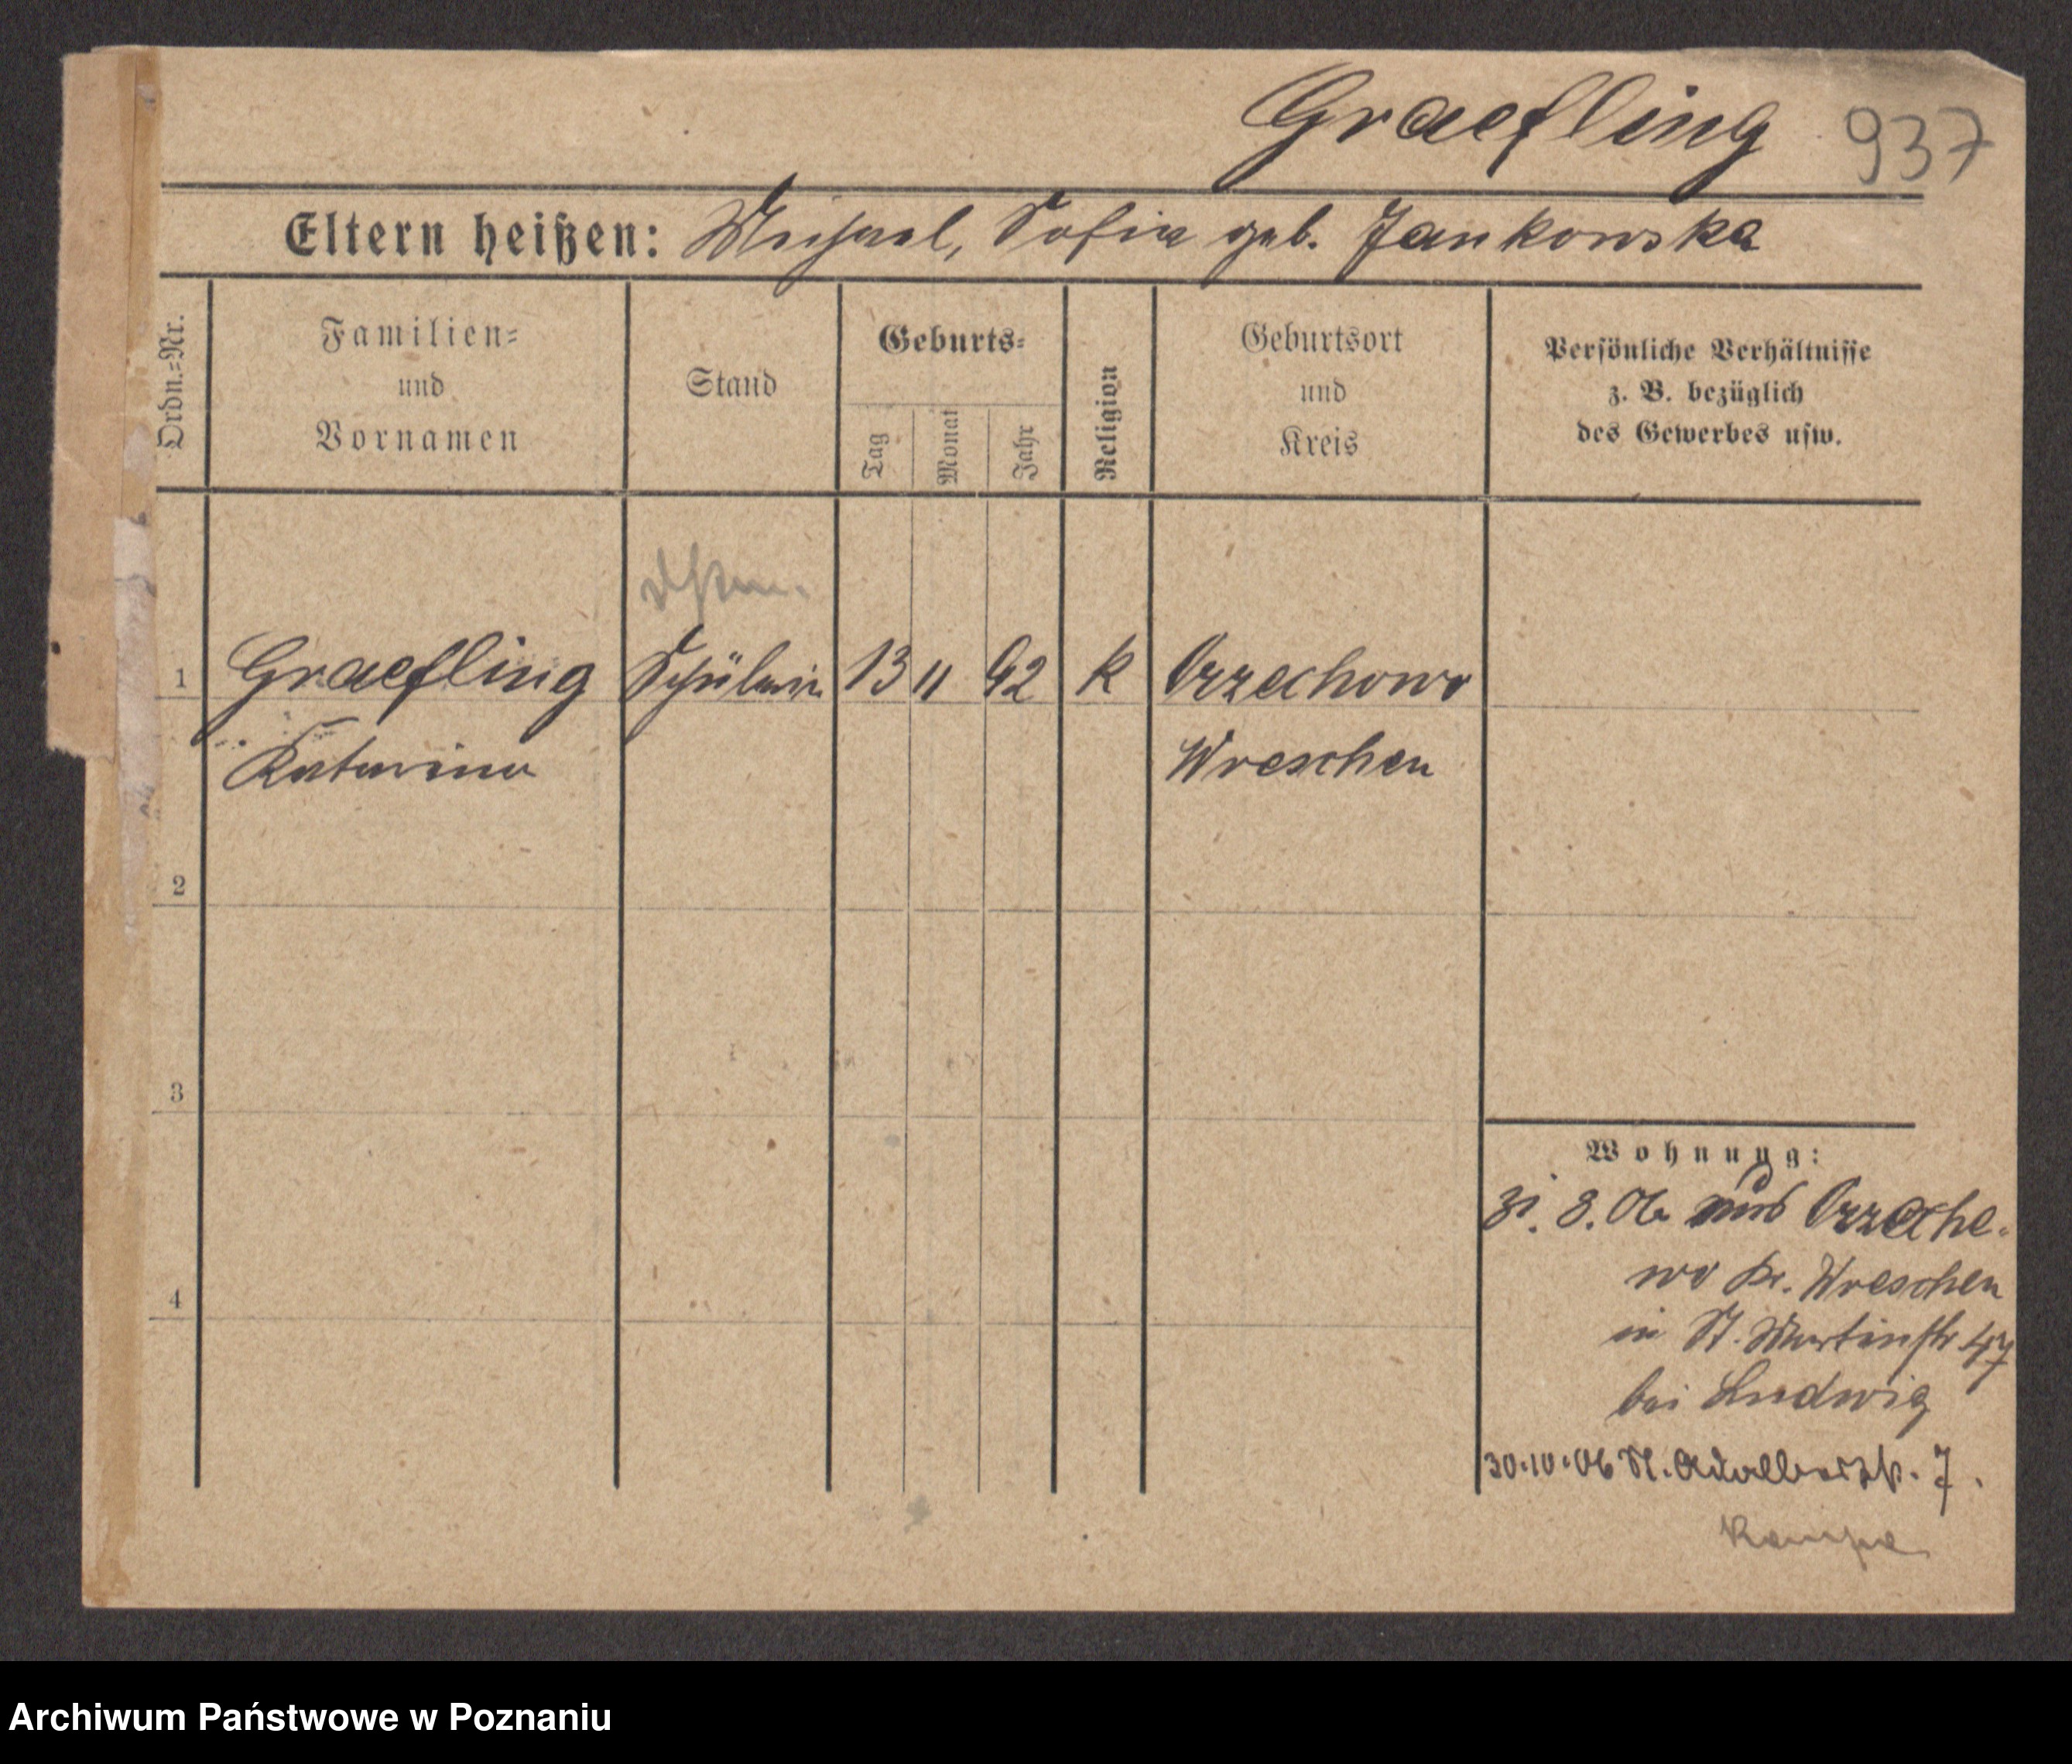 Graefling 937
Eltern heißen: Michael, Sofia geb. Jankowska
Ordn.-Nr.
Familien-
und
Vornamen
Stand
Geburts-
Tag
Monat
Jahr
Religion
Geburtsort
und
Kreis
Persönliche Verhältnisse
z. B. bezüglich
des Gewerbes usw.
1 Graefling Schülerin 13 11 92 k Orzechowo
Katarina Wreschen
2
3
4
Wohnung:
31. 8. 06 aus Orzecho-
wo Kr. Wreschen
in St. Martinstr 47
bei Ludwig
30.10.06 St. Adalbertstr. 7.
Archiwum Państwowe w Poznaniu